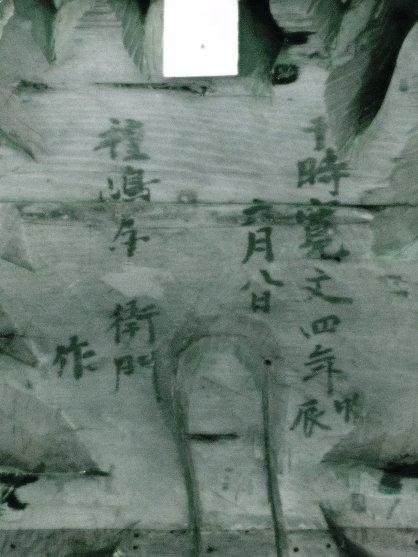 于時寛文四年甲辰
六月八日
嶋 衛門
作